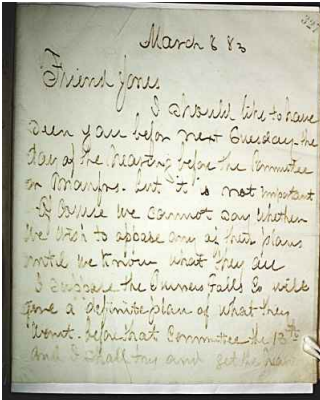 327
March 8 83
Friend Jones
I should like to have
seen you before next Tuesday the
day of the hearing before the Committee
on Manfrs. but it is not important
Of course we cannot say whether
we wish to oppose any of their plans
until we know what they are
I suppose the Turners Falls Co will
give a definite plan of what they
want before that Committee the 13th
and I shall try and get the